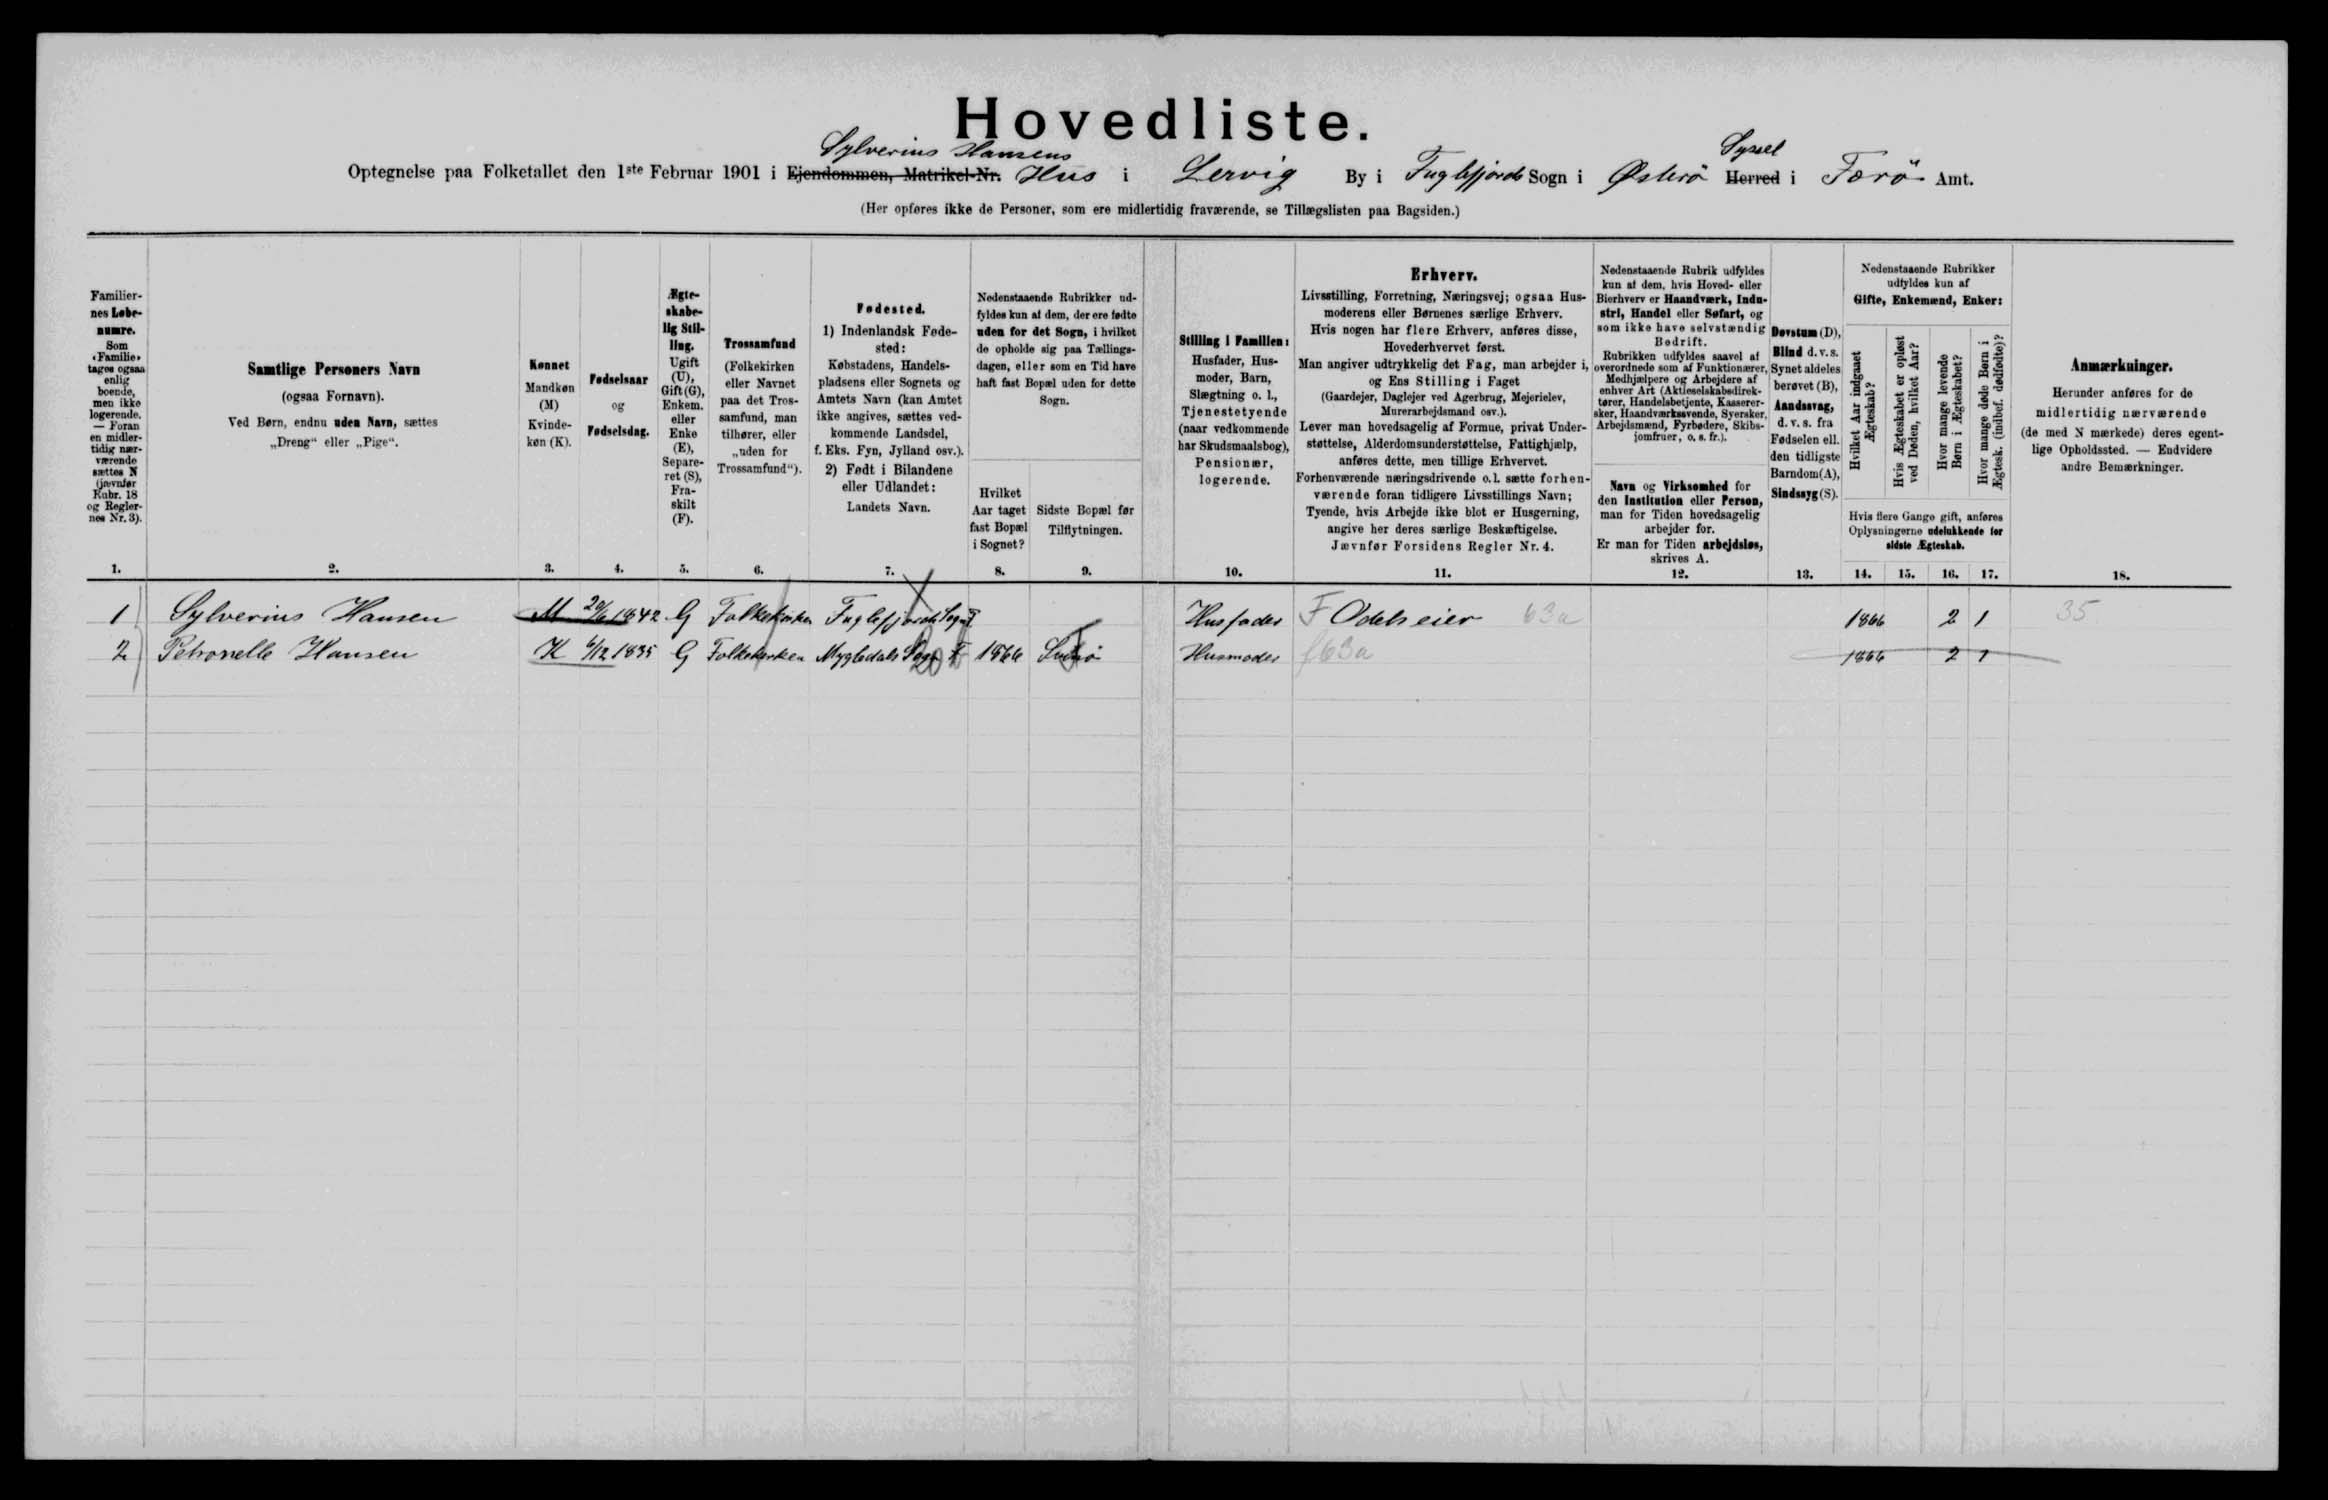 Hovedliste.
Sylverius Hansens Syssel
Optegnelse paa Folketallet den 1ste Februar 1901 i Ejendommen, Matrikel-Nr. Hus i Lervig By i Fuglefjords Sogn i Østerö Herred i Færö Amt.
(Her opføres ikke de Personer, som ere midlertidig fraværende, se Tillægslisten paa Bagsiden.)
Familier-
nes Løbe-
numre.
Som
«Familie»
tages ogsaa
enlig
boende,
men ikke
logerende.
— Foran
en midler-
tidig nær-
værende
sættes N
(jævnfør
Rubr. 18
og Regler-
nes Nr. 3).
1.
Samtlige Personers Navn
(ogsaa Fornavn).
Ved Børn, endnu uden Navn, sættes
„Dreng“ eller „Pige“.
2.
Kønnet
Mandkøn
(M)
Kvinde-
køn (K).
3.
Fødselsaar
og
Fødselsdag.
4.
Ægte-
skabe-
lig Stil-
ling.
Ugift
(U),
Gift (G),
Enkem.
eller
Enke
(E),
Separe-
ret (S),
Fra-
skilt
(F).
5.
Trossamfund
(Folkekirken
eller Navnet
paa det Tros-
samfund, man
tilhører, eller
„uden for
Trossamfund“).
6.
Fødested.
1) Indenlandsk Føde-
sted:
Købstadens, Handels-
pladsens eller Sognets og
Amtets Navn (kan Amtet
ikke angives, sættes ved-
kommende Landsdel,
f. Eks. Fyn, Jylland osv.).
2) Født i Bilandene
eller Udlandet:
Landets Navn.
7.
Nedenstaaende Rubrikker ud-
fyldes kun af dem, der ere fødte
uden for det Sogn, i hvilket
de opholde sig paa Tællings-
dagen, eller som en Tid have
haft fast Bopæl uden for dette
Sogn.
Hvilket
Aar taget
fast Bopæl
i Sognet?
8.
Sidste Bopæl før
Tilflytningen.
9.
Stilling i Familien:
Husfader, Hus-
moder, Barn,
Slægtning o. l.,
Tjenestetyende
(naar vedkommende
har Skudsmaalsbog),
Pensionær,
logerende.
10.
Erhverv.
Livsstilling, Forretning, Næringsvej; ogsaa Hus-
moderens eller Børnenes særlige Erhverv.
Hvis nogen har flere Erhverv, anføres disse,
Hovederhvervet først.
Man angiver udtrykkelig det Fag, man arbejder i,
og Ens Stilling i Faget
(Gaardejer, Daglejer ved Agerbrug, Mejerielev,
Murerarbejdsmand osv.).
Lever man hovedsagelig af Formue, privat Under-
støttelse, Alderdomsunderstøttelse, Fattighjælp,
anføres dette, men tillige Erhvervet.
Forhenværende næringsdrivende o. l. sætte forhen-
værende foran tidligere Livsstillings Navn;
Tyende, hvis Arbejde ikke blot er Husgerning,
angive her deres særlige Beskæftigelse.
Jævnfør Forsidens Regler Nr. 4.
11.
Nedenstaaende Rubrik udfyldes
kun af dem, hvis Hoved- eller
Bierhverv er Haandværk, Indu-
stri, Handel eller Søfart, og
som ikke have selvstændig
Bedrift.
Rubrikken udfyldes saavel af
overordnede som af Funktionærer,
Medhjælpere og Arbejdere af
enhver Art (Aktieselskabsdirek-
tører, Handelsbetjente, Kasserer-
sker, Haandværkssvende, Syersker,
Arbejdsmænd, Fyrbødere, Skibs-
jomfruer, o. s. fr.).
Navn og Virksomhed for
den Institution eller Person,
man for Tiden hovedsagelig
arbejder for.
Er man for Tiden arbejdsløs,
skrives A.
12.
Døvstum (D),
Blind d. v. s.
Synet aldeles
berøvet (B),
Aandssvag,
d. v. s. fra
Fødselen ell.
den tidligste
Barndom (A),
Sindssyg (S).
13.
Nedenstaaende Rubrikker
udfyldes kun af
Gifte, Enkemænd, Enker:
Hvilket Aar indgaaet
Ægteskab?
Hvis Ægteskabet er opløst
ved Døden, hvilket Aar?
Hvor mange levende
Børn i Ægteskabet?
Hvor mange døde Børn i
Ægtesk. (indbef. dødfødte)?
Hvis flere Gange gift, anføres
Oplysningerne udelukkende for
sidste Ægteskab.
14. 15. 16. 17.
Anmærkninger.
Herunder anføres for de
midlertidig nærværende
(de med N mærkede) deres egent-
lige Opholdssted. — Endvidere
andre Bemærkninger.
18.
1 Sylverius Hansen M 20/6 1842 G Folkekirken Fuglefjords Sogn F Husfader F Odelseier 63a 1866 2 1 35
2 Petronelle Hansen K 6/12 1835 G Folkekirken Mygledals Sogn F 20b 1866 Suderö Husmoder f63a 1866 2 1